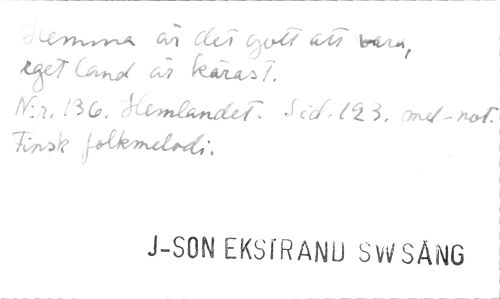 Hemma är det gott att vara,
eget land är kärast.
N:r. 136. Hemlandet. Sid. 123. med-not.
Finsk folkmelodi.
J-SON EKSTRAND SWSÅNG